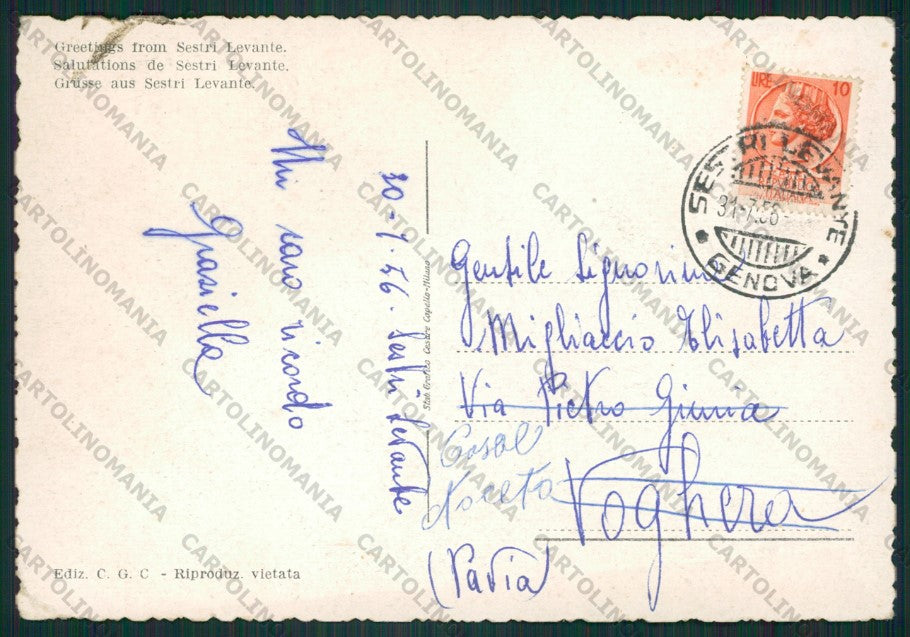 Greetings from Sestri Levante.
Salutations de Sestri Levante.
Grüsse aus Sestri Levante.
LIRE 10
SESTRI LEVANTE
31-7.56
GENOVA
30-7-56. Sestri Levante
Un caro ricordo
Graziella
Stab. Grafico Cesare Capello-Milano
Gentile Signorina
Migliaccio Elisabetta
Via Pietro Giuria
Casal
Noceta
Voghera
(Pavia)
Ediz. C. G. C - Riproduz. vietata
CARTOLINOMANIA